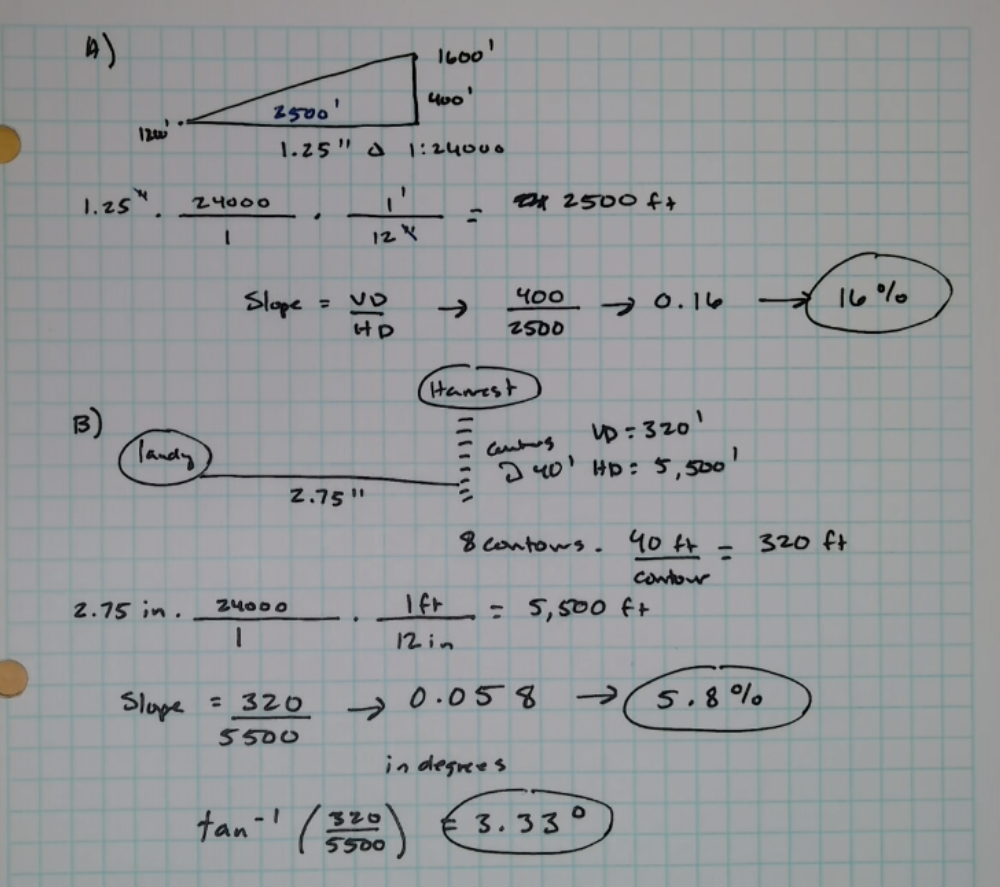 A)
1600'
400'
2500'
1200'
1.25" Δ 1:24000
1.25" · 24000/1 · 1'/12" = 2500 ft
Slope = VD/HD → 400/2500 → 0.16 → 16%
Harvest
B)
contours VD = 320'
40' HD = 5,500'
2.75"
8 contours · 40 ft/contour = 320 ft
2.75 in · 24000/1 · 1ft/12in = 5,500 ft
Slope = 320/5500 → 0.058 → 5.8%
in degrees
tan⁻¹ (320/5500) = 3.33°